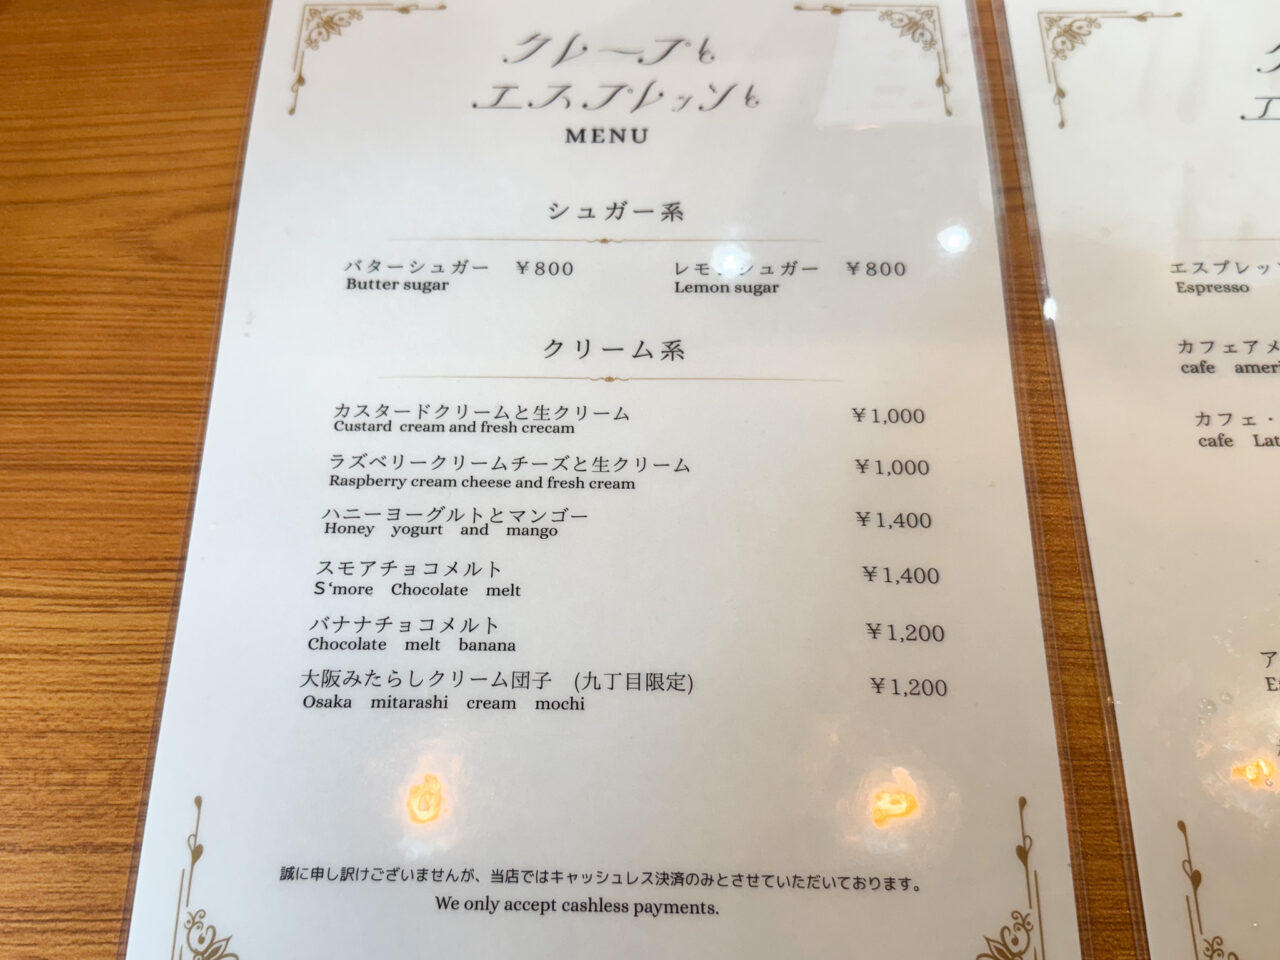 クレープと
エスプレッソと
MENU
シュガー系
バターシュガー ¥800
Butter sugar
レモンシュガー ¥800
Lemon sugar
クリーム系
カスタードクリームと生クリーム ¥1,000
Custard cream and fresh crecam
ラズベリークリームチーズと生クリーム ¥1,000
Raspberry cream cheese and fresh cream
ハニーヨーグルトとマンゴー ¥1,400
Honey yogurt and mango
スモアチョコメルト ¥1,400
S‘more Chocolate melt
バナナチョコメルト ¥1,200
Chocolate melt banana
大阪みたらしクリーム団子 (九丁目限定) ¥1,200
Osaka mitarashi cream mochi
誠に申し訳けございませんが、当店ではキャッシュレス決済のみとさせていただいております。
We only accept cashless payments.
エスプレッソ
Espresso
カフェアメ
cafe ameri
カフェ・
cafe Lat